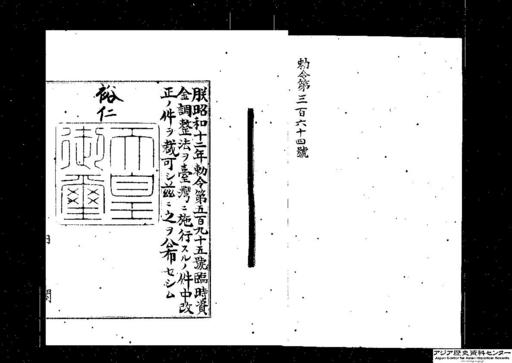 勅令第三百六十四號
朕昭和十二年勅令第五百九十五號臨時資
金調整法ヲ臺灣ニ施行スルノ件中改
正ノ件ヲ裁可シ茲ニ之ヲ公布セシム
裕仁
天皇
御璽
アジア歴史資料センター
Japan Center for Asian Historical Records